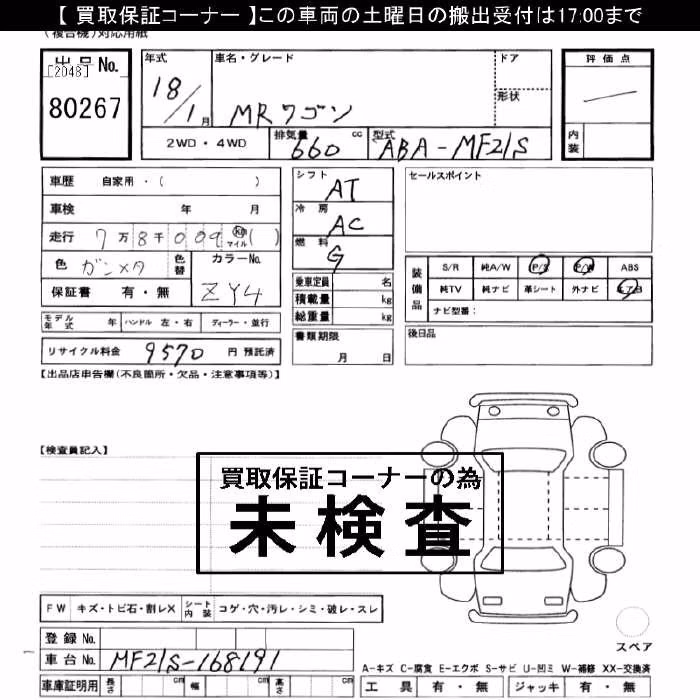 【 買取保証コーナー 】この車両の土曜日の搬出受付は17:00まで
(複合機)対応用紙
出品No.
[2048]
80267
年式
18/1月
車名・グレード
MRワゴン
ドア
形状
評価点
内装
2WD・4WD
排気量
660 cc
型式
ABA-MF21S
車歴 自家用・( )
車検 年 月
走行 7万8千009 km マイル ( )
色 ガンメタ
色替
カラーNo.
ZY4
保証書 有・無
シフト
AT
冷房
AC
燃料
G
乗車定員 名
積載量 kg
総重量 kg
書類期限
月 日
セールスポイント
装備品
S/R 純A/W P/S P/W ABS
純TV 純ナビ 革シート 外ナビ エアB
ナビ型番:
後日品
モデル年式 年 ハンドル 左・右 ディーラー・並行
リサイクル料金 9570 円 預託済
【出品店申告欄(不良箇所・欠品・注意事項等)】
【検査員記入】
買取保証コーナーの為
未検査
FW キズ・トビ石・割レX シート内装 コゲ・穴・汚レ・シミ・破レ・スレ
登録No.
車台No. MF21S-168191
車庫証明用 長さ cm 幅 cm 高さ cm
スペア
A-キズ C-腐食 E-エクボ S-サビ U-凹ミ W-補修 XX-交換済
工具 有・無 ジャッキ 有・無